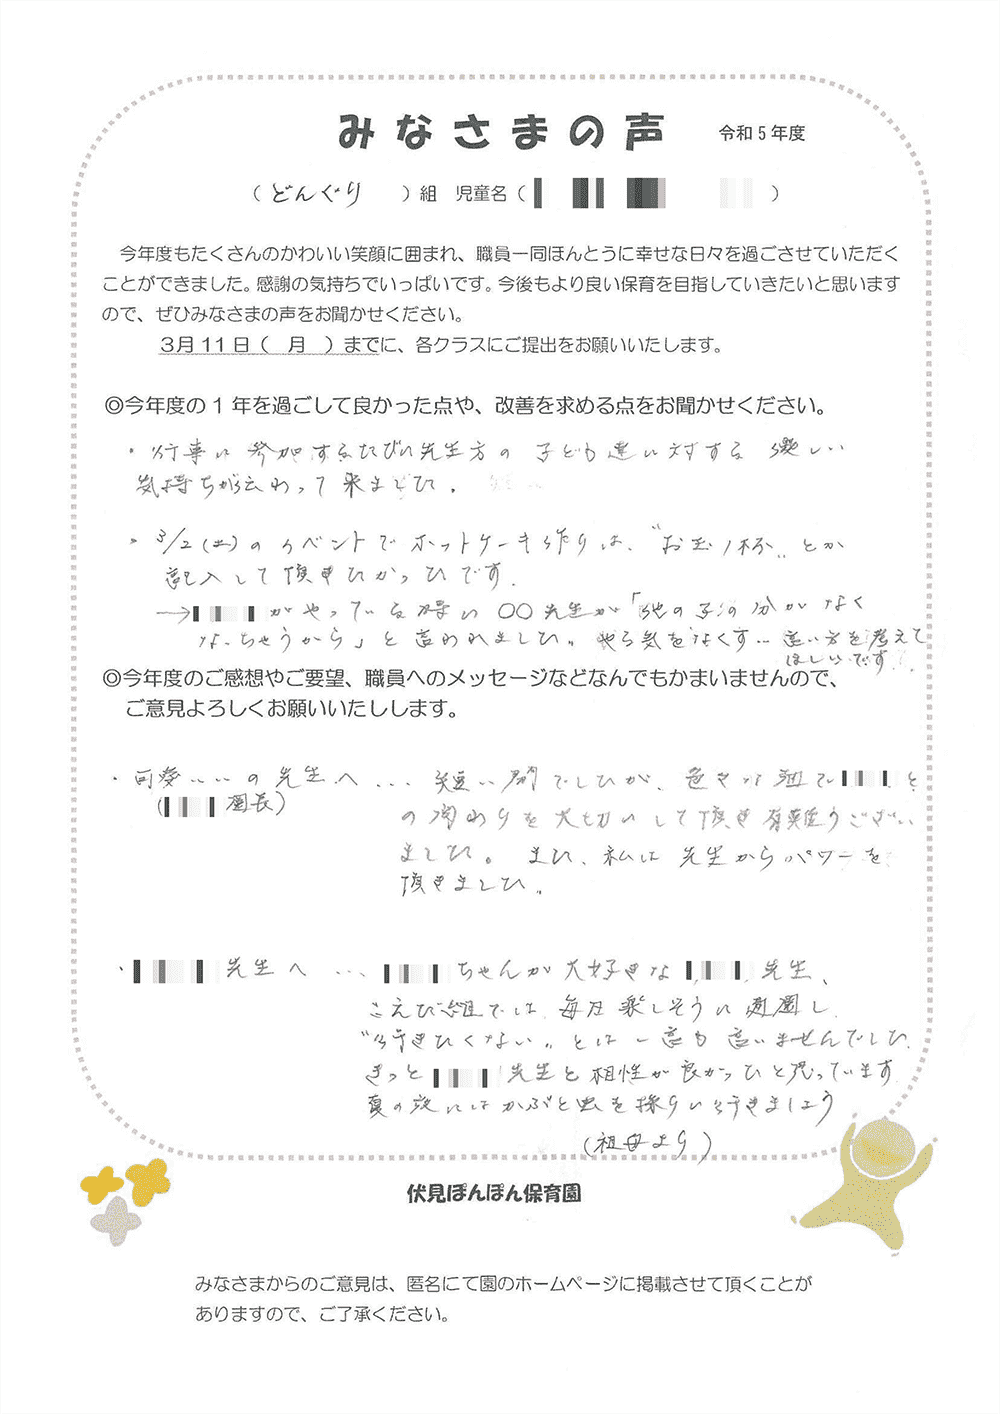 みなさまの声 令和5年度
( どんぐり ) 組 児童名 ( )
今年度もたくさんのかわいい笑顔に囲まれ、職員一同ほんとうに幸せな日々を過ごさせていただく
ことができました。感謝の気持ちでいっぱいです。今後もより良い保育を目指していきたいと思います
ので、ぜひみなさまの声をお聞かせください。
3月11日( 月 )までに、各クラスにご提出をお願いいたします。
◎今年度の1年を過ごして良かった点や、改善を求める点をお聞かせください。
・行事に参加するたびに先生方の子ども達に対する優しい
気持ちが伝わって来ました。
・3/2(土)のイベントでホットケーキ作りは、"お玉1杯"とか
記入して頂きたかったです。
→ がやっている時に〇〇先生が「他の子の分がなく
なっちゃうから」と言われました。やる気をなくす… 言い方を考えて
ほしいです
◎今年度のご感想やご要望、職員へのメッセージなどなんでもかまいませんので、
ご意見よろしくお願いいたしします。
・可愛いいの先生へ … 短い間でしたが、色々な面で と
( 園長)
の関わりを大切にして頂き有難うござい
ました。また、私は先生からパワーを
頂きました。
・ 先生へ … ちゃんが大好きな 先生、
こえび組では毎日楽しそうに通園し
"行きたくない"とは一言も言いませんでした。
きっと 先生と相性が良かったと思っています
真の夜にはかぶと虫を採りに行きましょう
(祖母より)
伏見ぽんぽん保育園
みなさまからのご意見は、匿名にて園のホームページに掲載させて頂くことが
ありますので、ご了承ください。